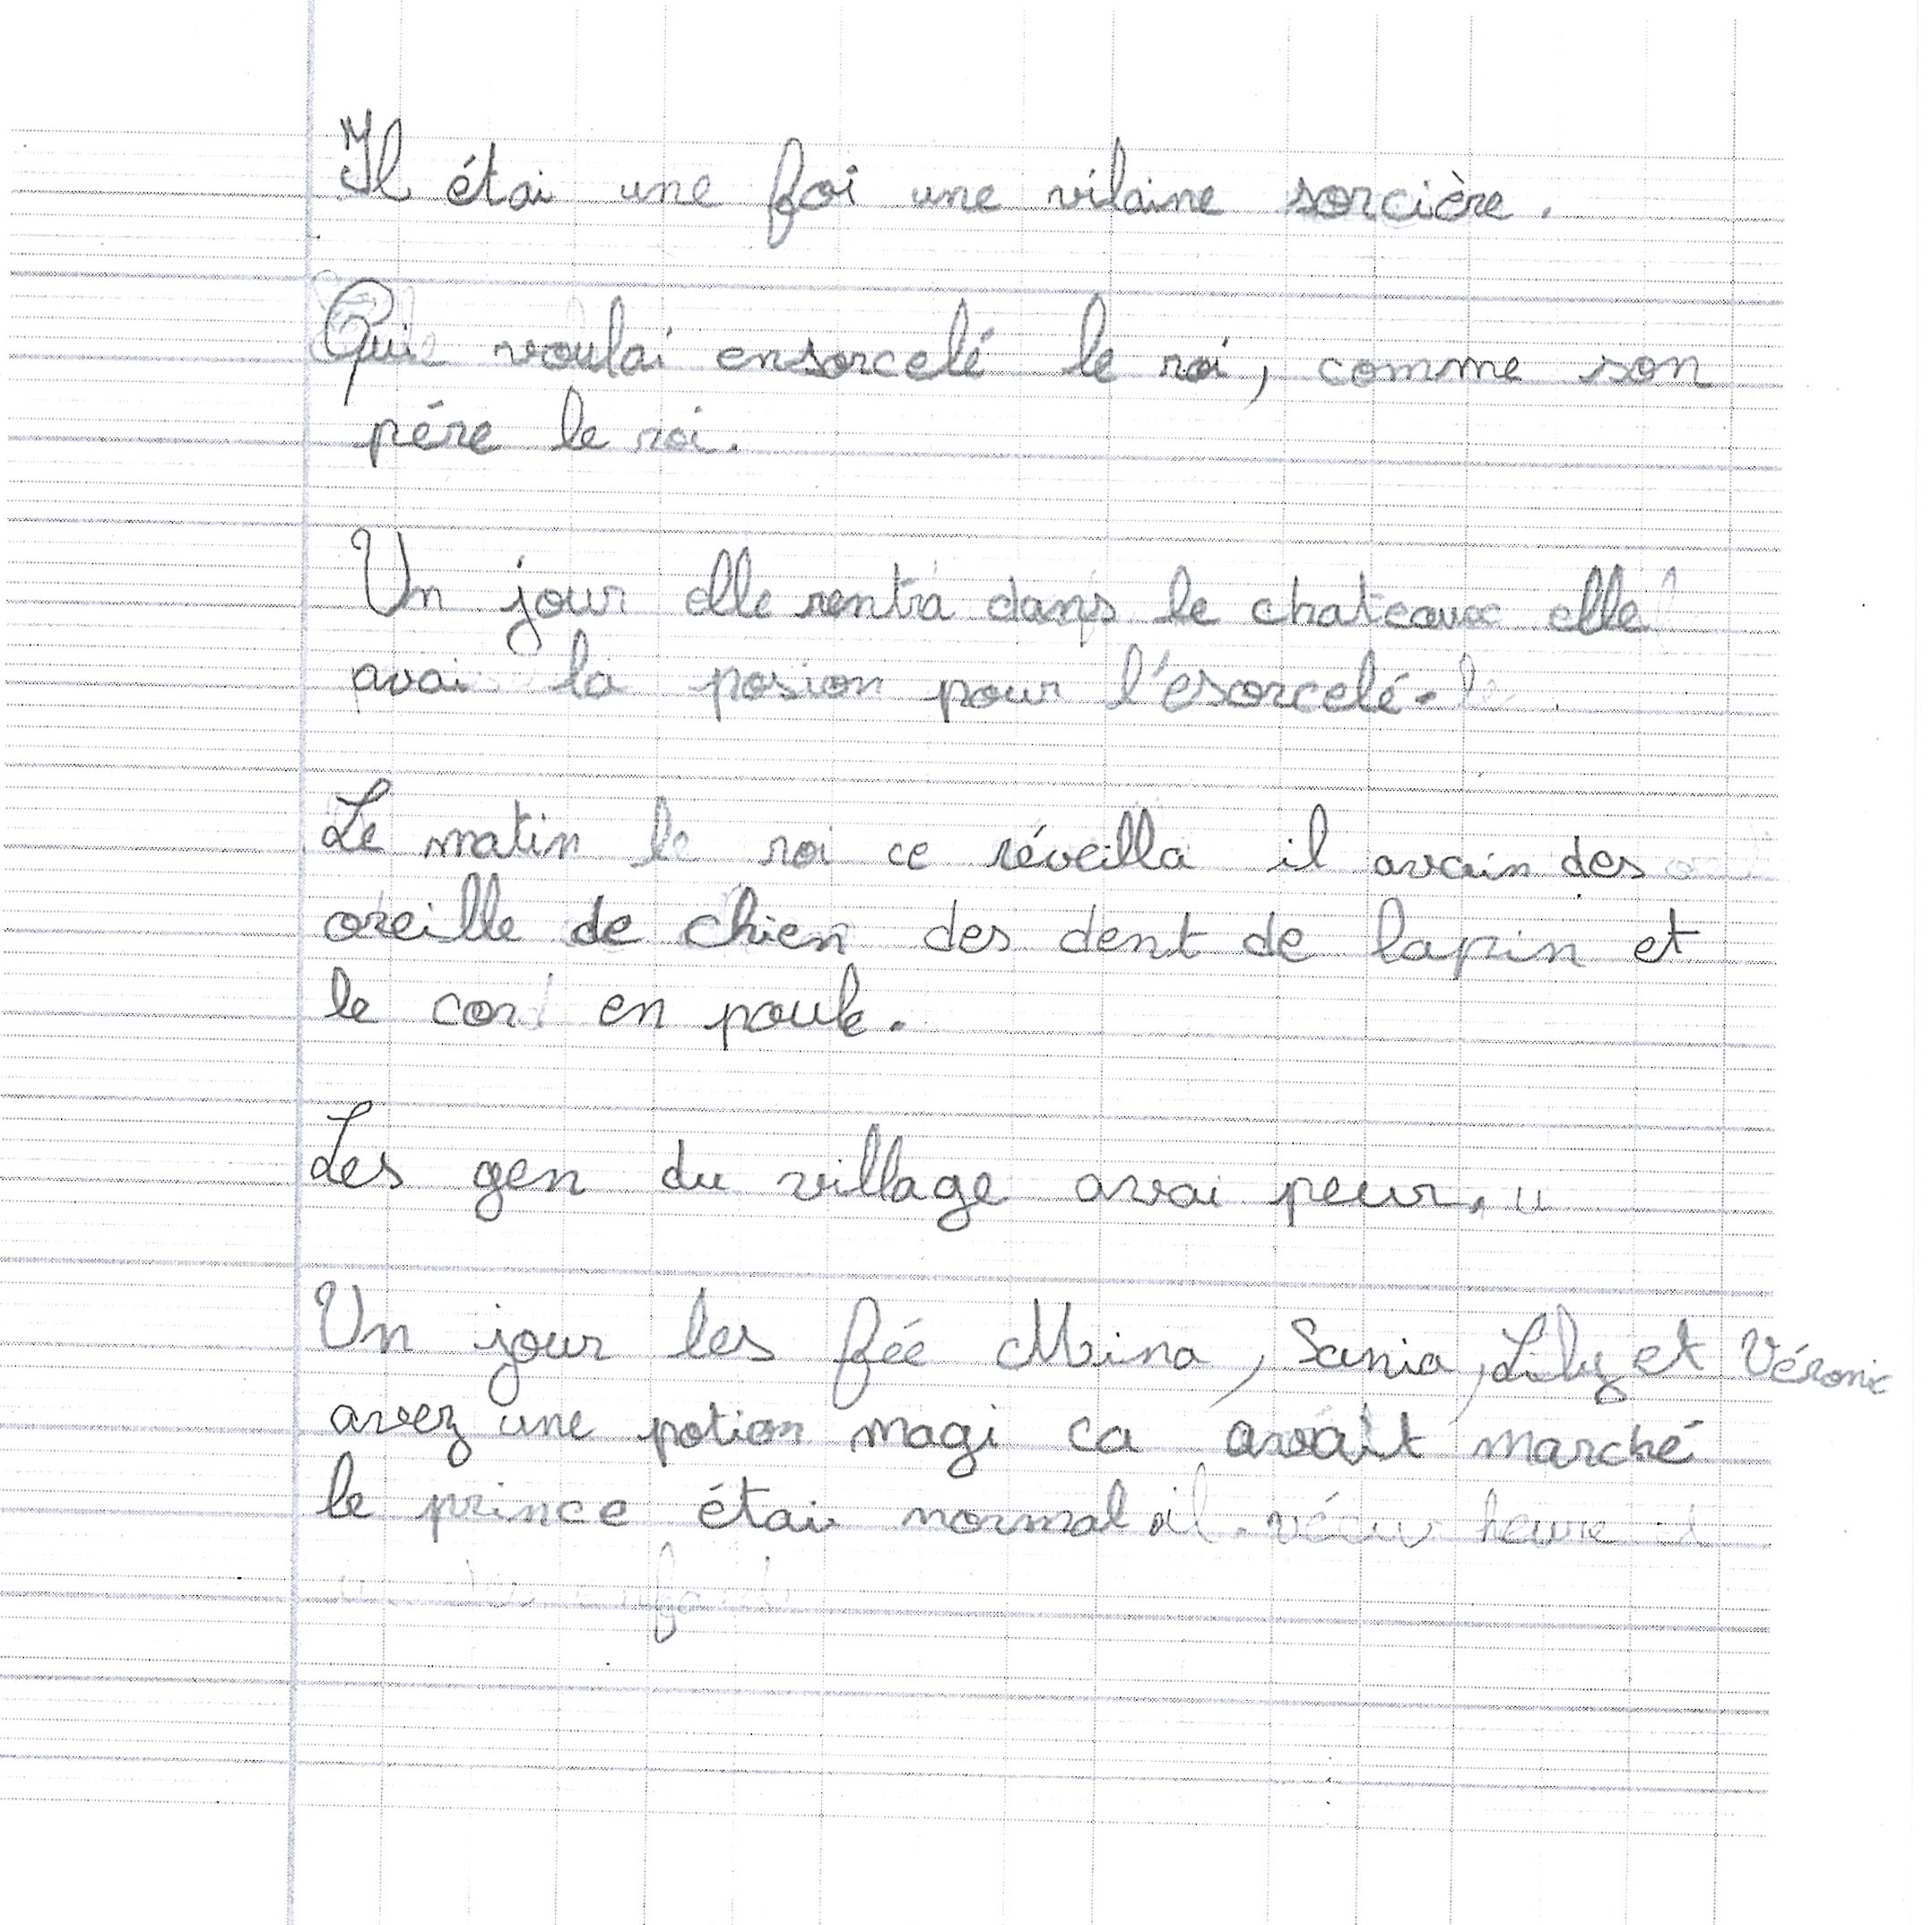 Il étai une foi une vilaine sorcière.
Qui voulai ensorcelé le roi, comme son
pére le roi.
Un jour elle rentra dans le chateaux elle
avai la posion pour l'esorcelé.
Le matin le roi ce réveilla il avain des
oreille de chien des dent de lapin et
le cor en poule.
Les gen du village avai peur.
Un jour les fée Mina, Sania, Lily et Véronic
avez une potion magi ca avait marché
le prince étai normal il vécu heure